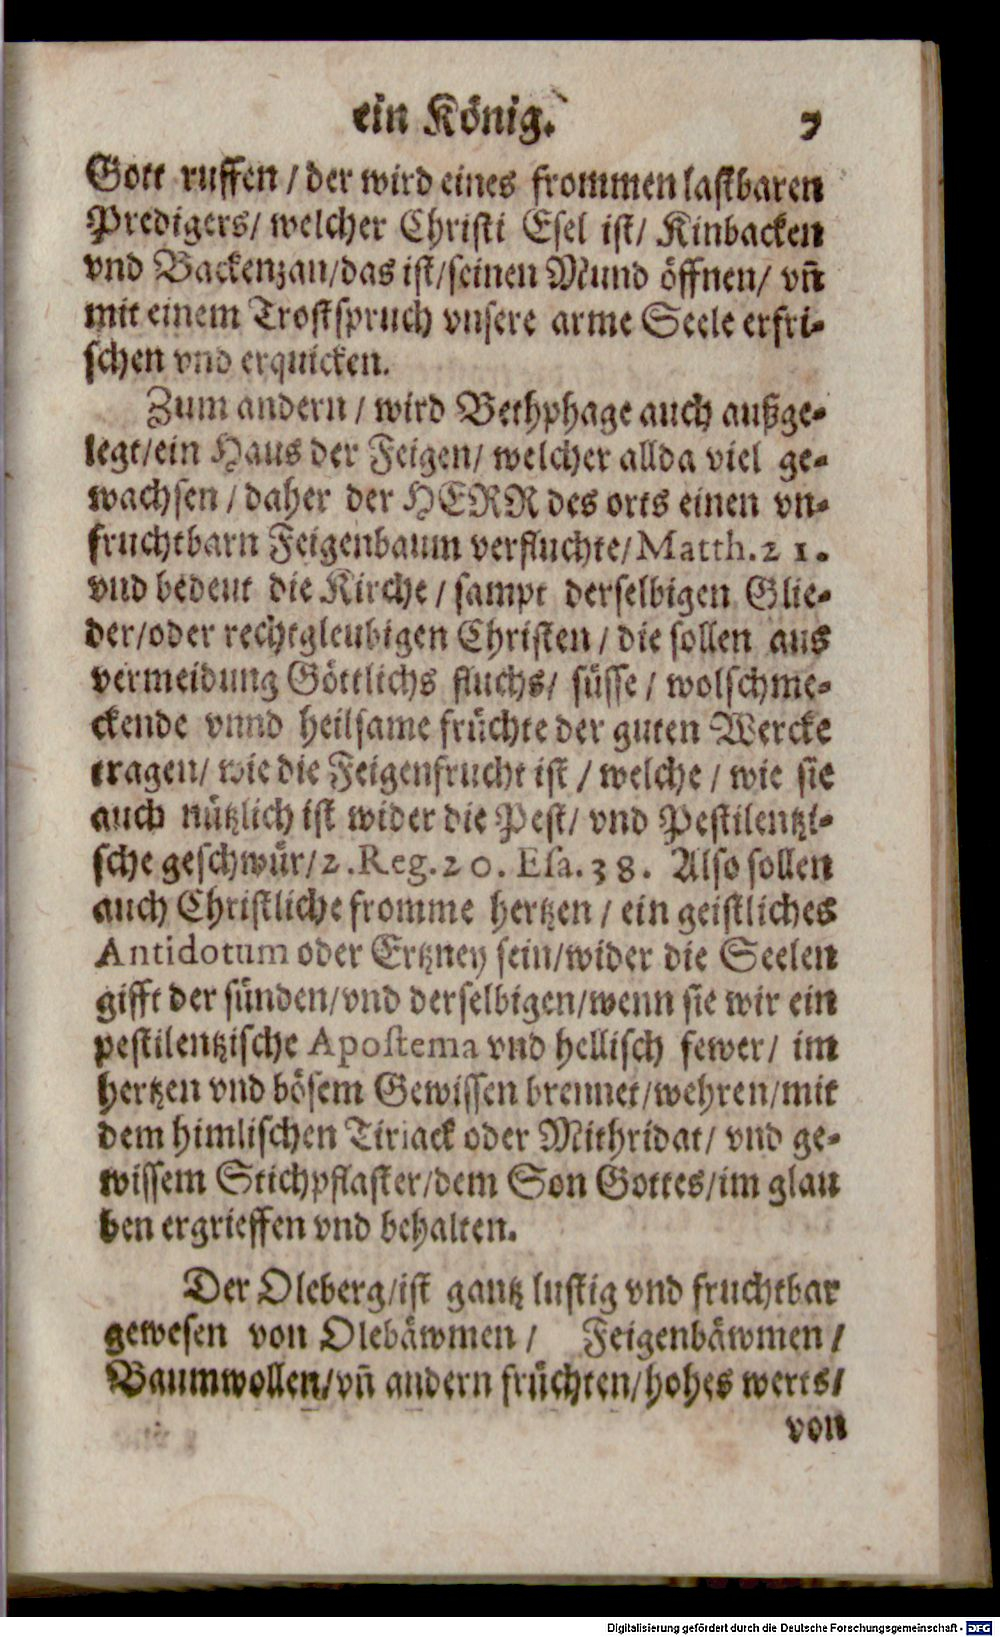 ein König. 7
Gott ruffen / der wird eines frommen lastbaren
Predigers/ welcher Christi Esel ist/ Kinbacken
vnd Backenzan/das ist/seinen Mund öffnen/ vñ
mit einem Trostspruch vnsere arme Seele erfri-
schen vnd erquicken.
Zum andern / wird Bethphage auch außge-
legt/ein Haus der Feigen/ welcher allda viel ge-
wachsen / daher der HERR des orts einen vn-
fruchtbarn Feigenbaum verfluchte/Matth.21.
vnd bedeut die Kirche / sampt derselbigen Glie-
der/oder rechtgleubigen Christen / die sollen aus
vermeidung Göttlichs fluchs/ süsse / wolschme-
ckende vnnd heilsame früchte der guten Wercke
tragen/ wie die Feigenfrucht ist / welche / wie sie
auch nützlich ist wider die Pest/ vnd Pestilentzi-
sche geschwür/2.Reg.20. Esa.38. Also sollen
auch Christliche fromme hertzen / ein geistliches
Antidotum oder Ertzney sein/wider die Seelen
gifft der sünden/vnd derselbigen/wenn sie wir ein
pestilentzische Apostema vnd hellisch fewer/ im
hertzen vnd bösem Gewissen brennet/wehren/mit
dem himlischen Tiriack oder Mithridat/ vnd ge-
wissem Stichpflaster/dem Son Gottes/im glau
ben ergrieffen vnd behalten.
Der Oleberg/ist gantz lustig vnd fruchtbar
gewesen von Olebäwmen / Feigenbäwmen /
Baumwollen/vñ andern früchten/hohes werts/
von
Digitalisierung gefördert durch die Deutsche Forschungsgemeinschaft - DFG